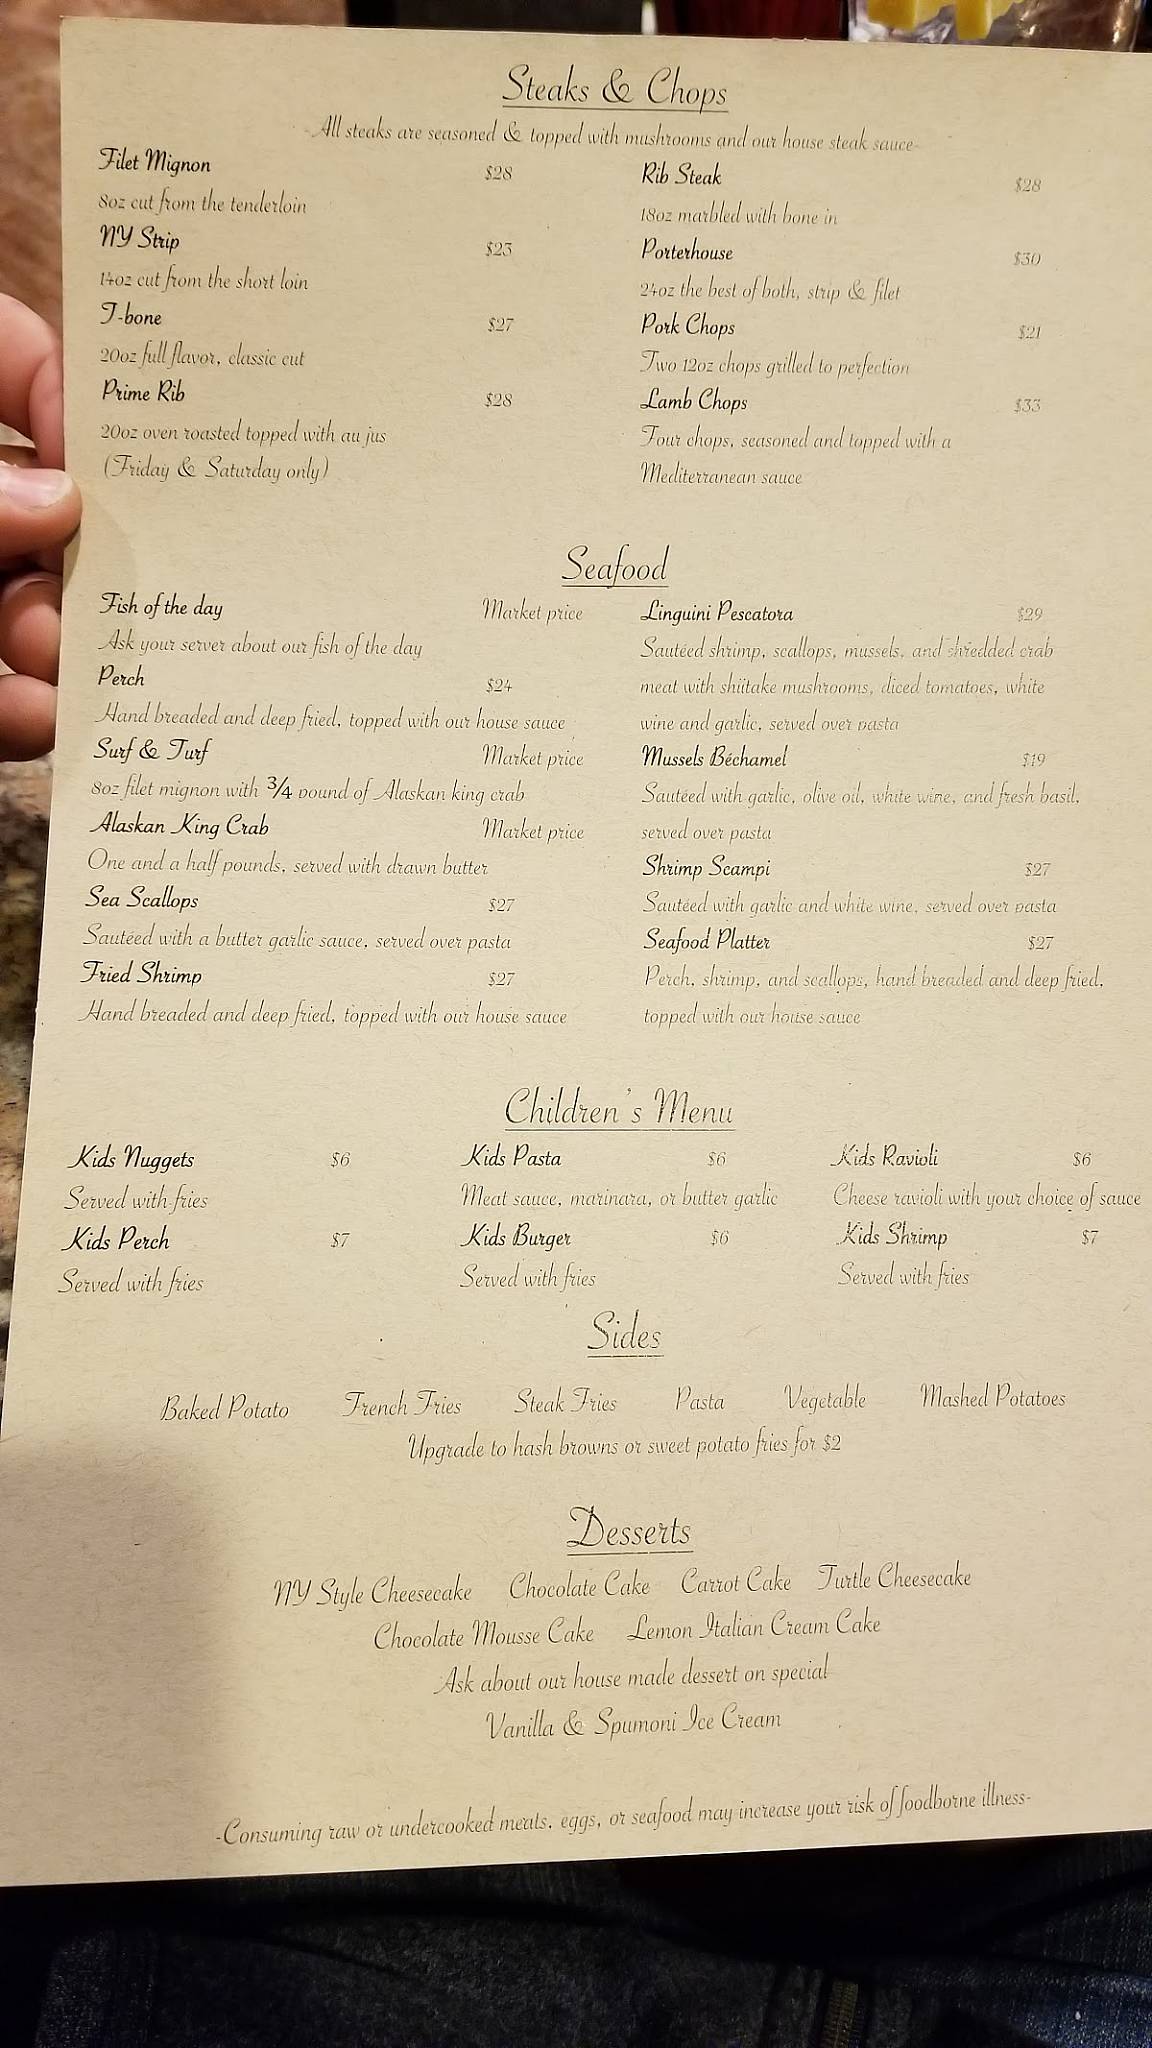 Steaks & Chops
-All steaks are seasoned & topped with mushrooms and our house steak sauce-
Filet Mignon $28
8oz cut from the tenderloin
NY Strip $23
14oz cut from the short loin
T-bone $27
20oz full flavor, classic cut
Prime Rib $28
20oz oven roasted topped with au jus
(Friday & Saturday only)
Rib Steak $28
18oz marbled with bone in
Porterhouse $30
24oz the best of both, strip & filet
Pork Chops $21
Two 12oz chops grilled to perfection
Lamb Chops $33
Four chops, seasoned and topped with a
Mediterranean sauce
Seafood
Fish of the day Market price
Ask your server about our fish of the day
Perch $24
Hand breaded and deep fried, topped with our house sauce
Surf & Turf Market price
8oz filet mignon with ¾ pound of Alaskan king crab
Alaskan King Crab Market price
One and a half pounds, served with drawn butter
Sea Scallops $27
Sautéed with a butter garlic sauce, served over pasta
Fried Shrimp $27
Hand breaded and deep fried, topped with our house sauce
Linguini Pescatora $29
Sautéed shrimp, scallops, mussels, and shredded crab
meat with shiitake mushrooms, diced tomatoes, white
wine and garlic, served over pasta
Mussels Béchamel $19
Sautéed with garlic, olive oil, white wine, and fresh basil,
served over pasta
Shrimp Scampi $27
Sautéed with garlic and white wine, served over pasta
Seafood Platter $27
Perch, shrimp, and scallops, hand breaded and deep fried,
topped with our house sauce
Children's Menu
Kids Nuggets $6 Kids Pasta $6 Kids Ravioli $6
Served with fries Meat sauce, marinara, or butter garlic Cheese ravioli with your choice of sauce
Kids Perch $7 Kids Burger $6 Kids Shrimp $7
Served with fries Served with fries Served with fries
Sides
Baked Potato French Fries Steak Fries Pasta Vegetable Mashed Potatoes
Upgrade to hash browns or sweet potato fries for $2
Desserts
NY Style Cheesecake Chocolate Cake Carrot Cake Turtle Cheesecake
Chocolate Mousse Cake Lemon Italian Cream Cake
Ask about our house made dessert on special
Vanilla & Spumoni Ice Cream
-Consuming raw or undercooked meats, eggs, or seafood may increase your risk of foodborne illness-